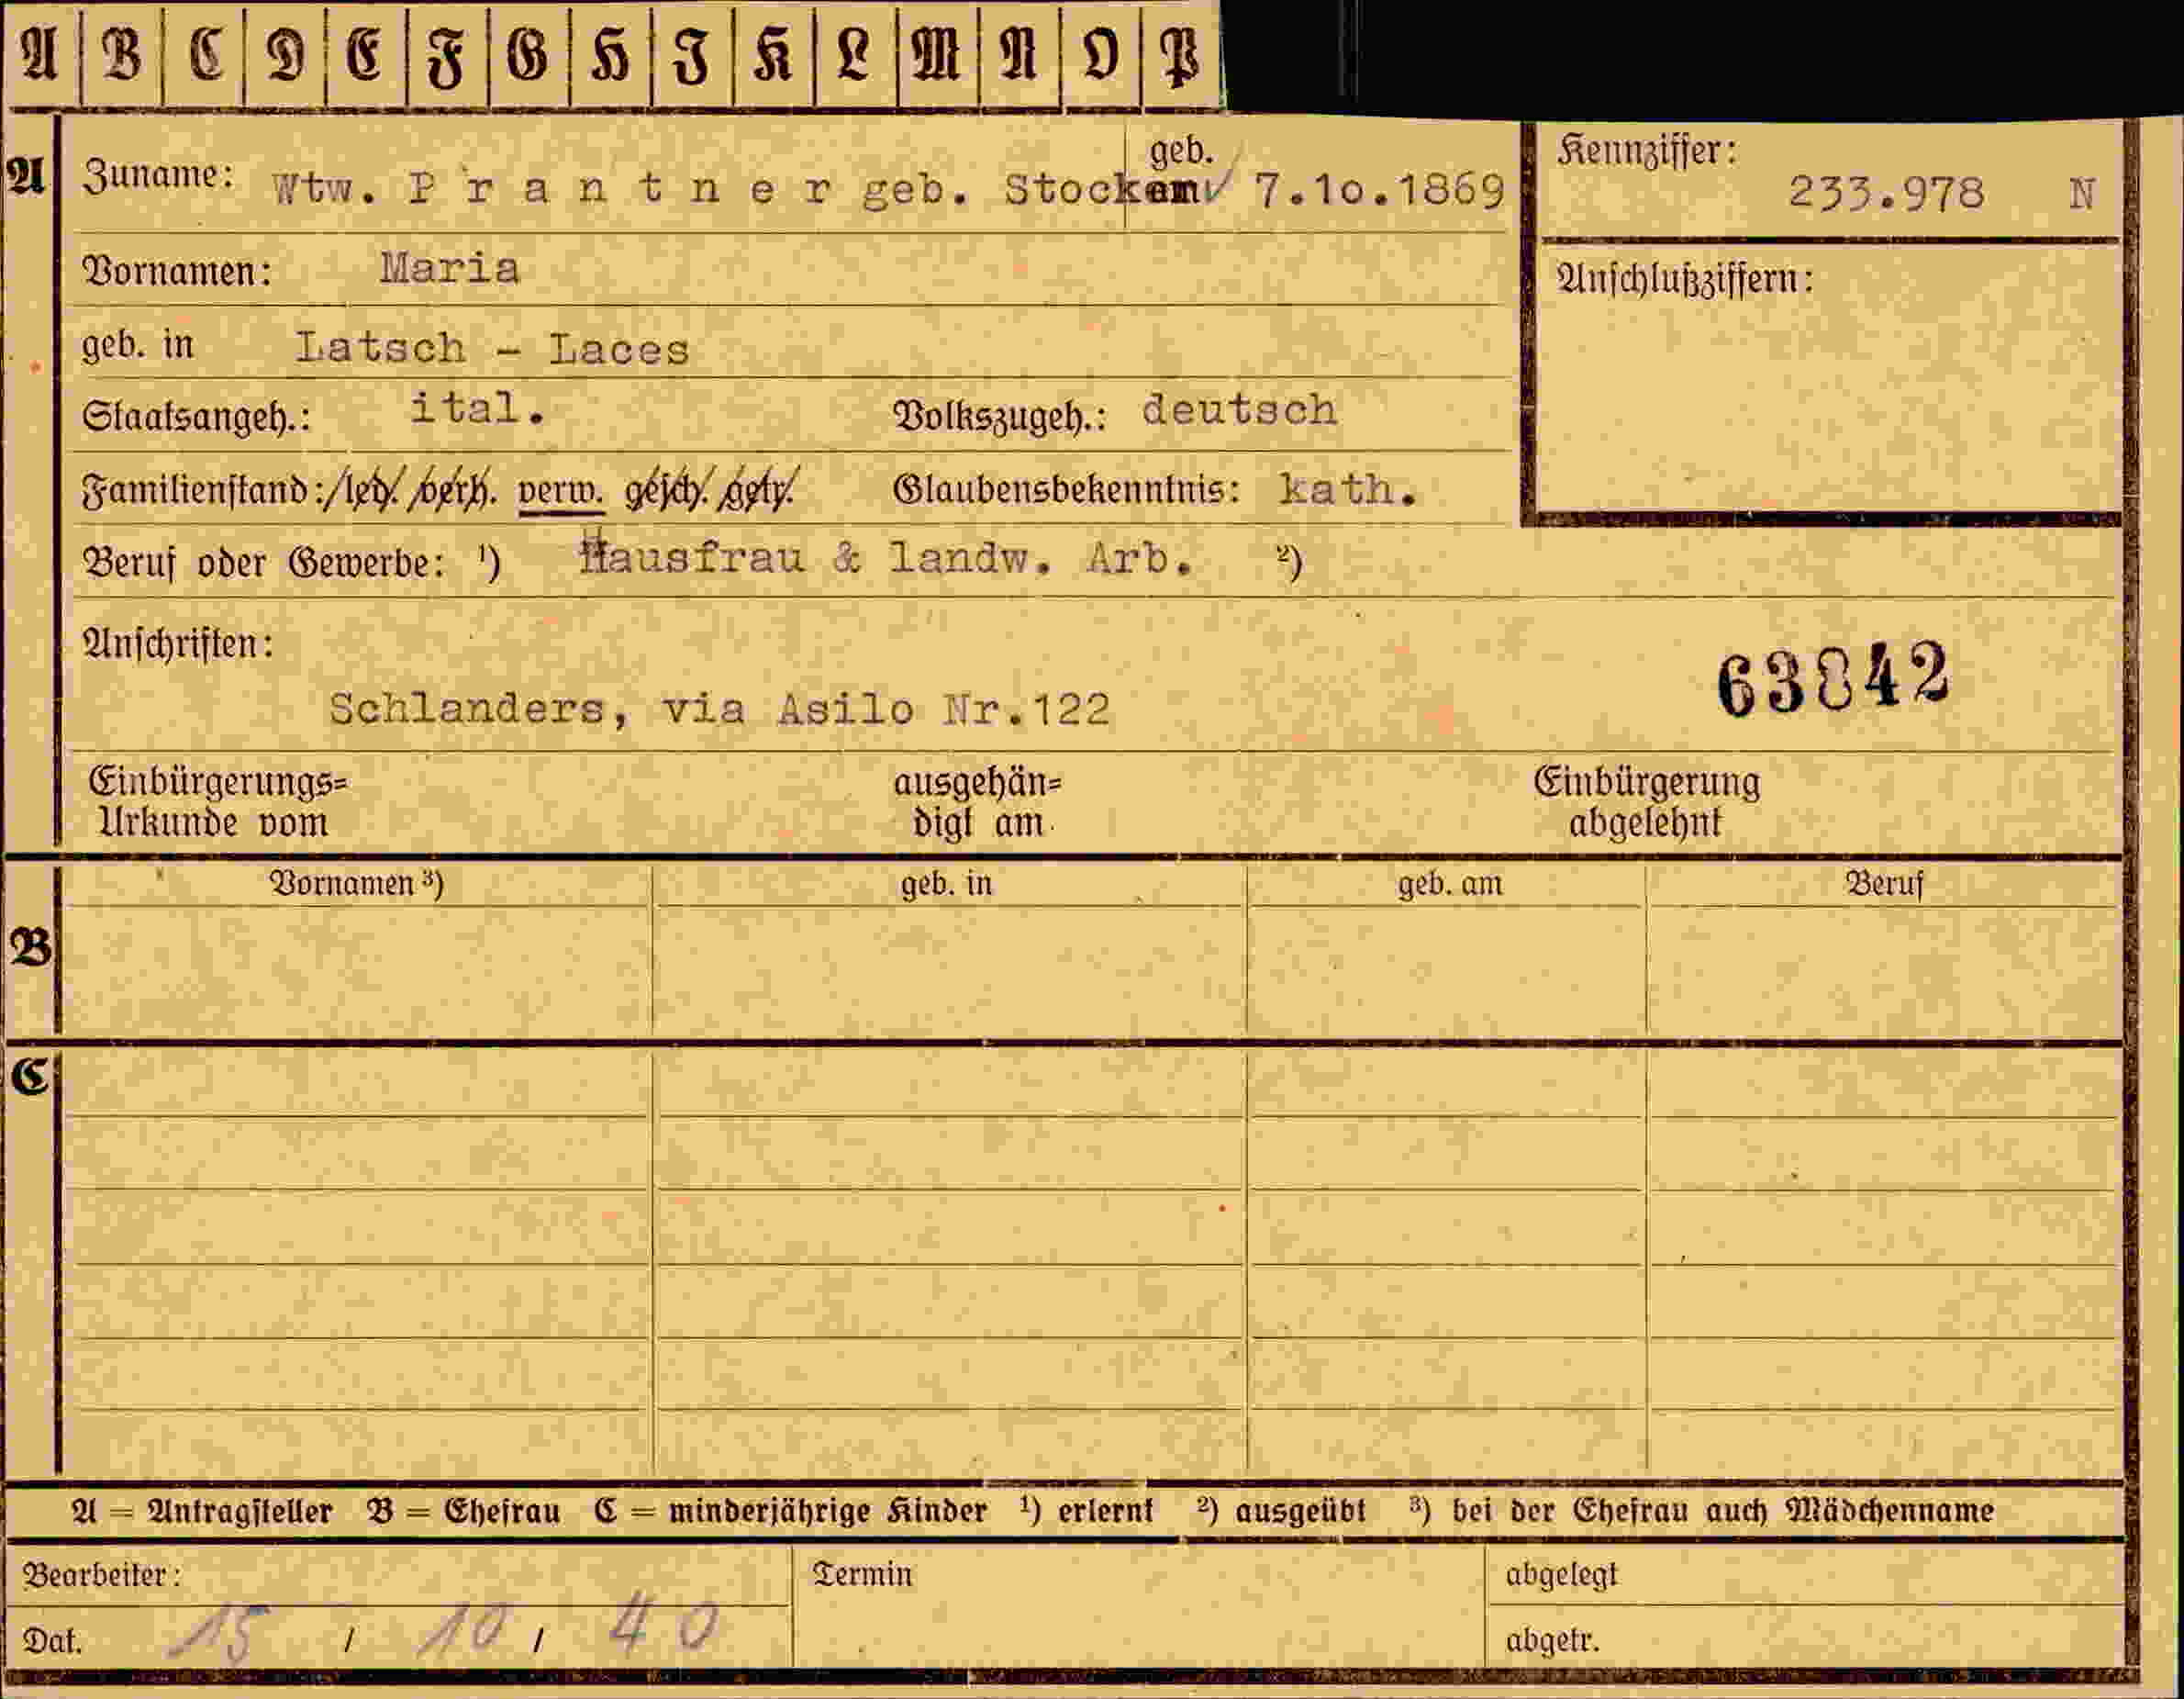 A B C D E F G H I K L M N O P
A Zuname: Wtw. P r a n t n e r geb. geb. 7.10.1869
Kennziffer:
233.978 N
Vornamen: Maria
Anschlußziffern:
geb. in Latsch - Laces
Staatsangeh.: ital. Volkszugeh.: deutsch
Familienstand: / led. / verh. verw. gesch. / getr. Glaubensbekenntnis: kath.
Beruf oder Gewerbe: ¹) Hausfrau & landw. Arb. ²)
Anschriften:
63842
Schlanders, via Asilo Nr.122
Einbürgerungs= ausgehän= Einbürgerung
Urkunde vom digt am abgelehnt
Vornamen ³) geb. in geb. am Beruf
B
C
A = Antragsteller B = Ehefrau C = minderjährige Kinder ¹) erlernt ²) ausgeübt ³) bei der Ehefrau auch Mädchenname
Bearbeiter: Termin abgelegt
Dat. 15 / 10 / 40 abgetr.